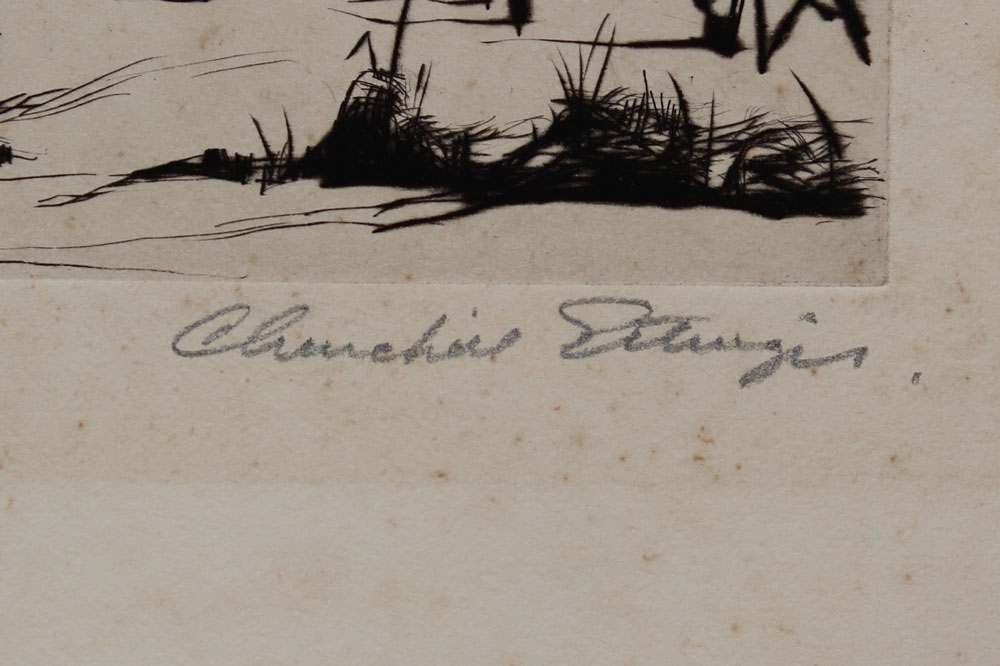 Churchill Ettinger.